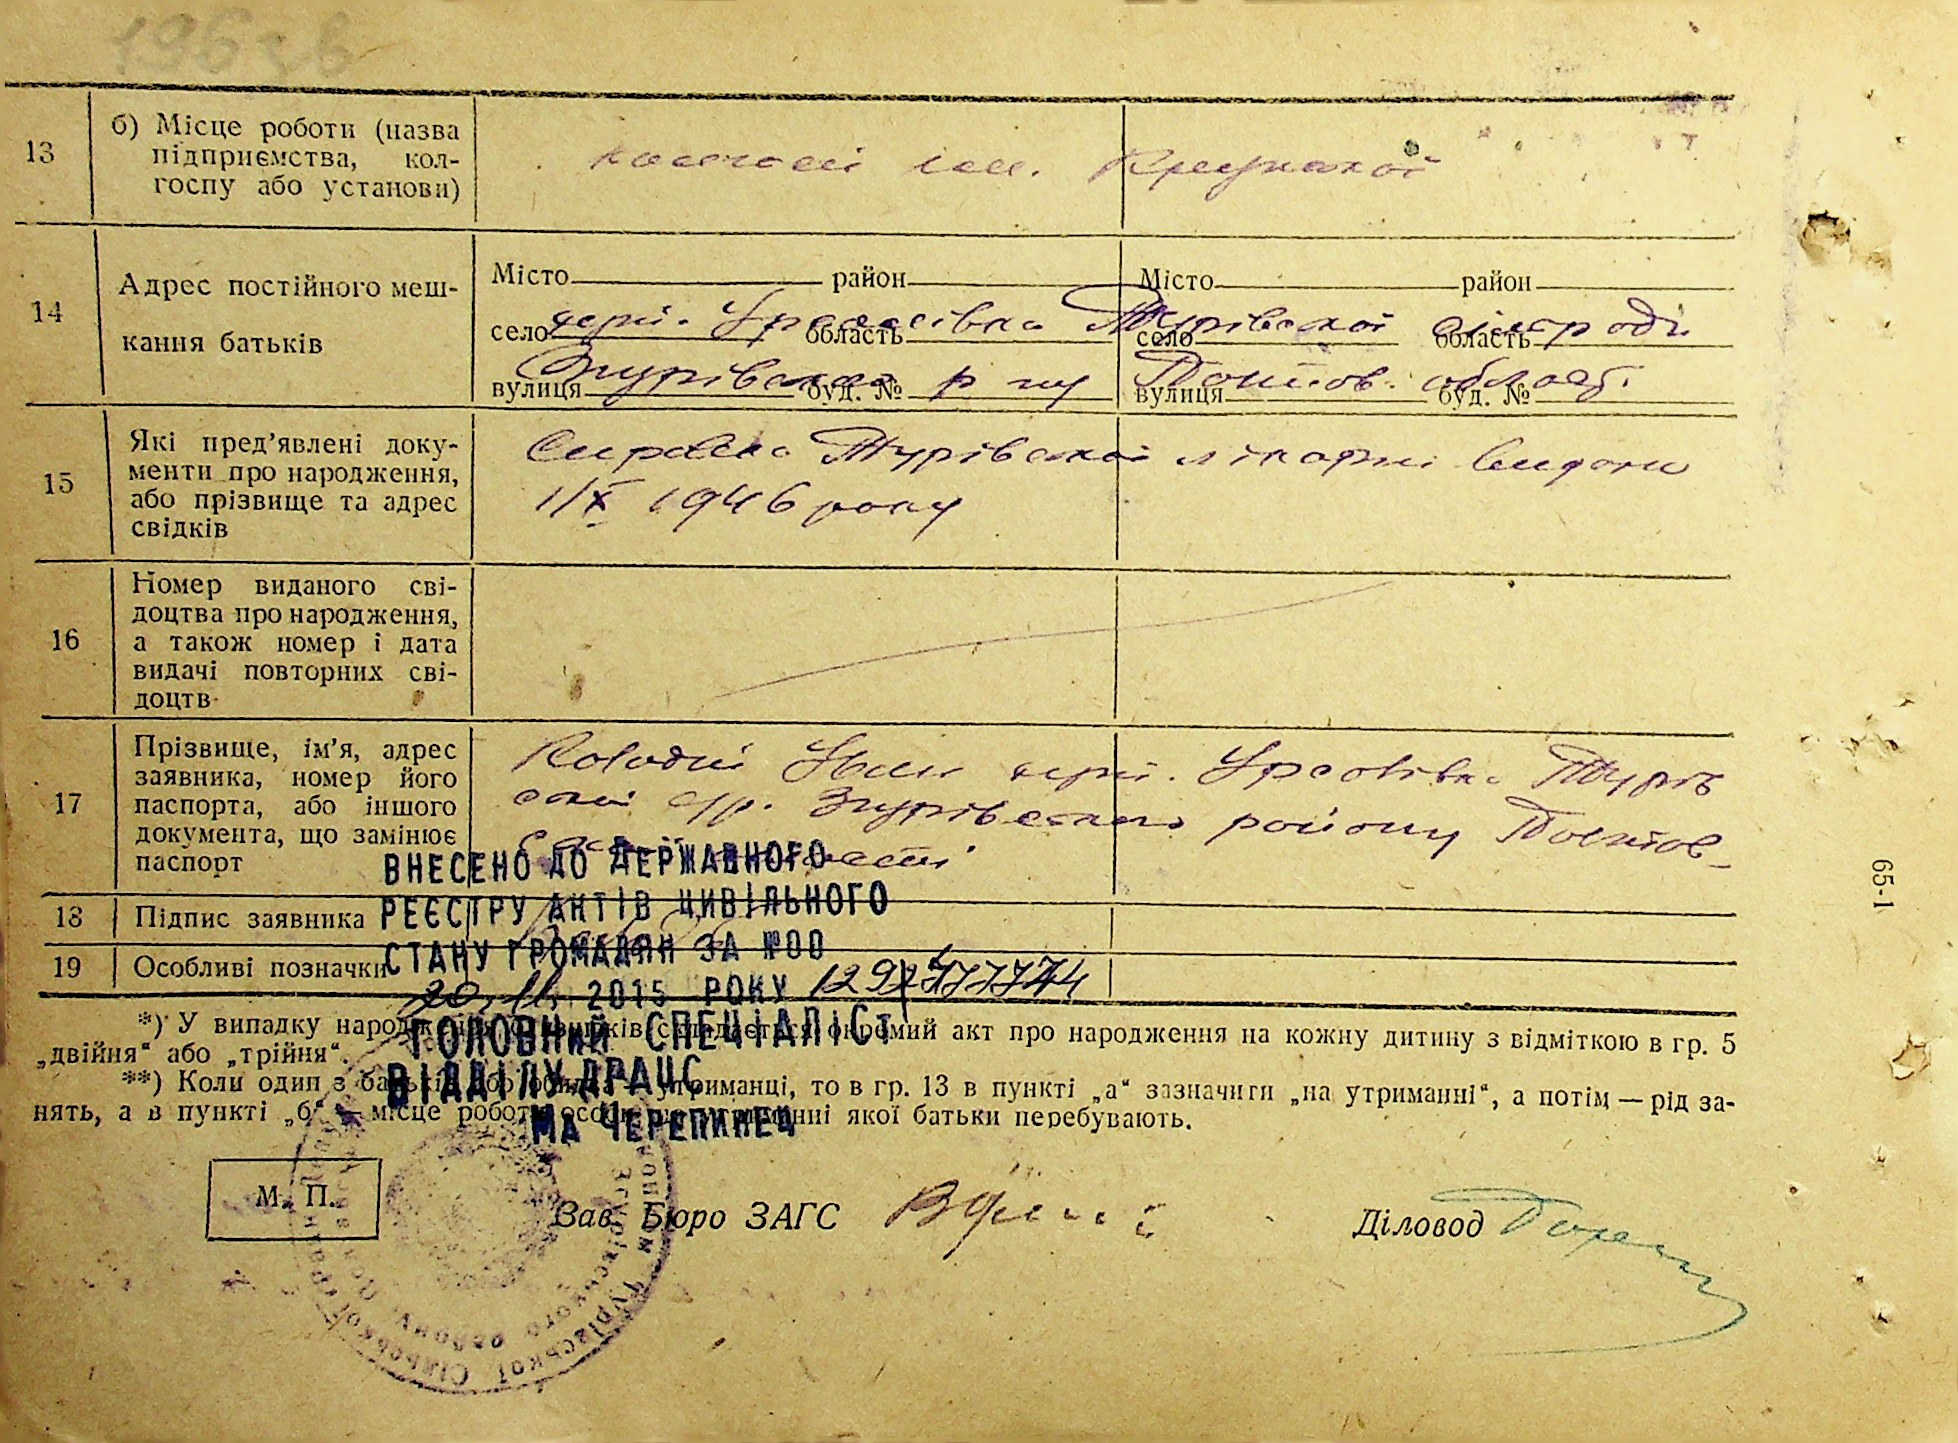 13
б) Місце роботи (назва
підприємства, кол-
госпу або установи)
колгосп ім. Крупської
14
Адрес постійного меш-
кання батьків
Місто район
село область
вулиця буд. №
Місто район
село область
вулиця буд. №
Турівської сільради
Згурівського р-ну Полтов. област.
15
Які пред'явлені доку-
менти про народження,
або прізвище та адрес
свідків
Справка Турівської лікарні видана
1/X 1946 року
16
Номер виданого сві-
доцтва про народження,
а також номер і дата
видачі повторних сві-
доцтв
17
Прізвище, ім'я, адрес
заявника, номер його
паспорта, або іншого
документа, що замінює
паспорт
Іван Турів
ської с/р. Згурівського району Полтов-
ської області
18
Підпис заявника
19
Особливі позначки
ВНЕСЕНО ДО ДЕРЖАВНОГО
РЕЄСТРУ АКТІВ ЦИВІЛЬНОГО
СТАНУ ГРОМАДЯН ЗА №00
20.11. 2015 РОКУ
ГОЛОВНИЙ СПЕЦІАЛІСТ
ВІДДІЛУ ДРАЦС
МА ЧЕРЕПИНЕЦ
*) У випадку народження окремий акт про народження на кожну дитину з відміткою в гр. 5
„двійня“ або „трійня“.
**) Коли один з батьків або обидва утриманці, то в гр. 13 в пункті „а“ зазначити „на утриманні“, а потім — рід за-
нять, а в пункті „б“ — місце роботи особи, на утриманні якої батьки перебувають.
М. П.
Зав. Бюро ЗАГС
Діловод
Турівської Сільської
Згурівського району
65-1